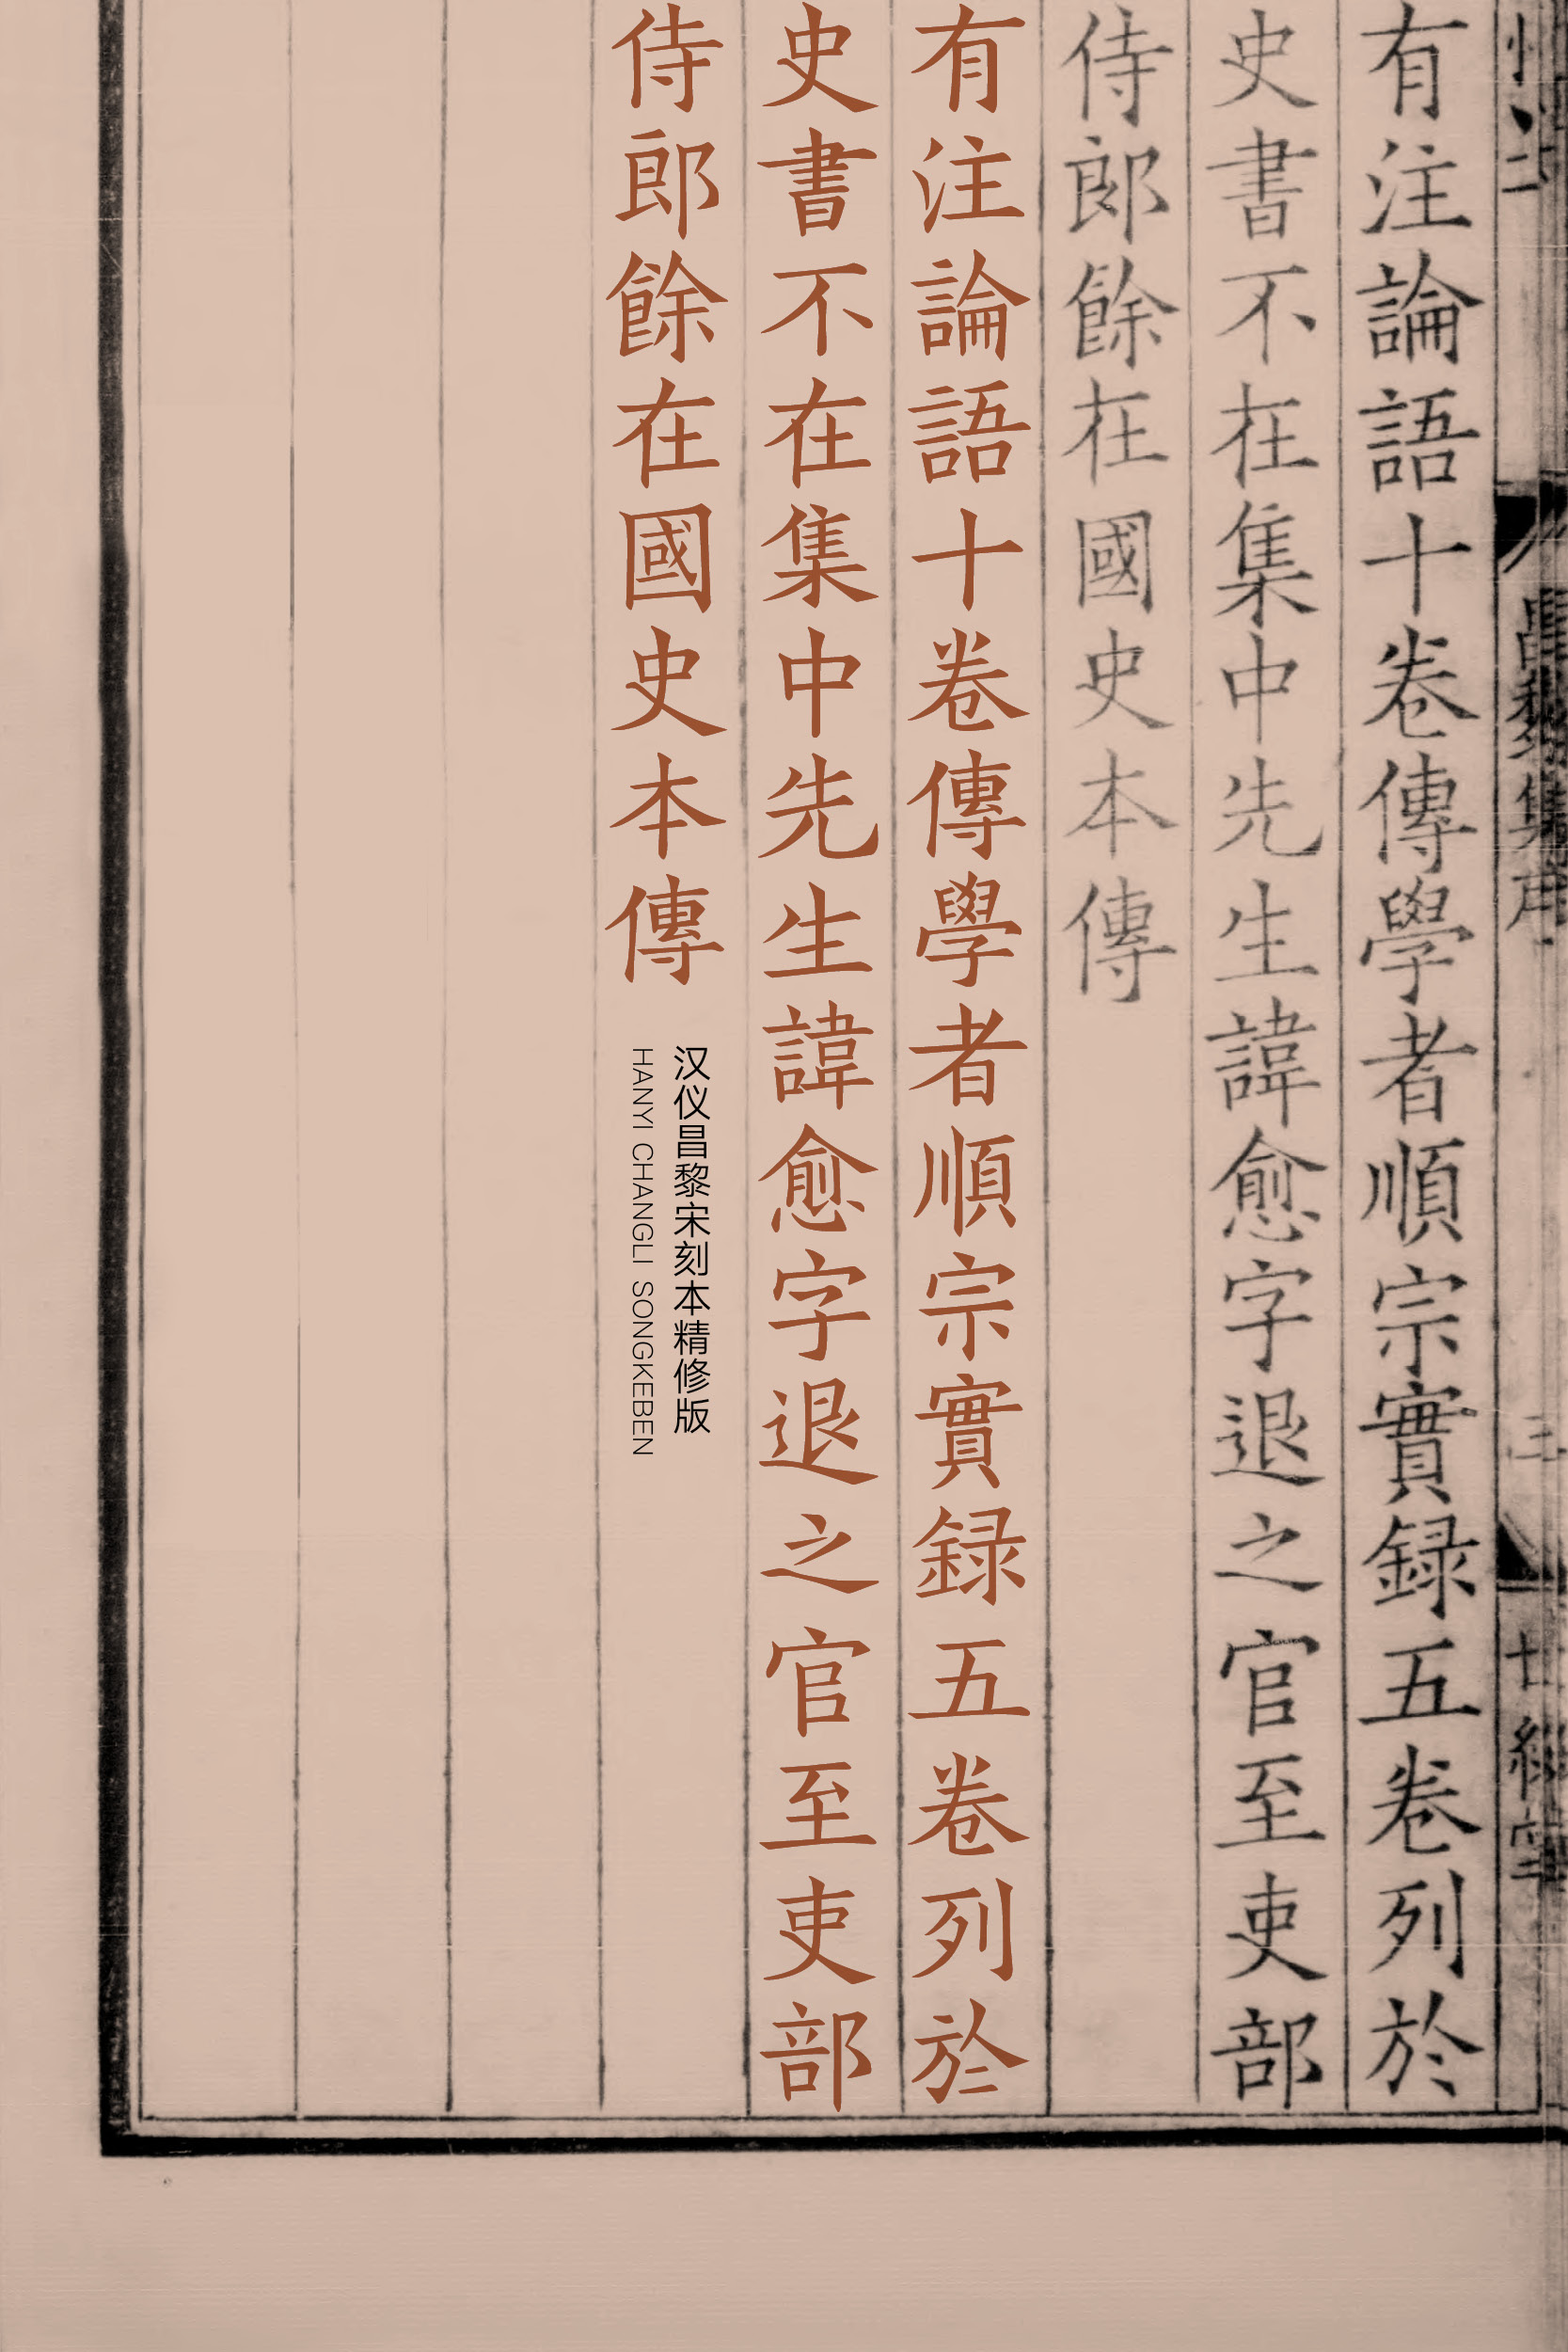 昌黎集序
三
有注論語十卷傳學者順宗實録五卷列於
史書不在集中先生諱愈字退之官至吏部
侍郎餘在國史本傳
有注論語十卷傳學者順宗實録五卷列於
史書不在集中先生諱愈字退之官至吏部
侍郎餘在國史本傳
汉仪昌黎宋刻本精修版
HANYI CHANGLI SONGKEBEN